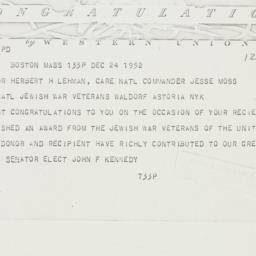 ONGRATULATIO
by WESTERN UNION
PD
BOSTON MASS 133P DEC 24 1952
OR HERBERT H LEHMAN, CARE NATL COMMANDER JESSE MOSS
ATL JEWISH WAR VETERANS WALDORF ASTORIA NYK
ST CONGRATULATIONS TO YOU ON THE OCCASION OF YOUR RECIE
SHED AN AWARD FROM THE JEWISH WAR VETERANS OF THE UNIT
DONOR AND RECIPIENT HAVE RICHLY CONTRIBUTED TO OUR GRE
SENATOR ELECT JOHN F KENNEDY